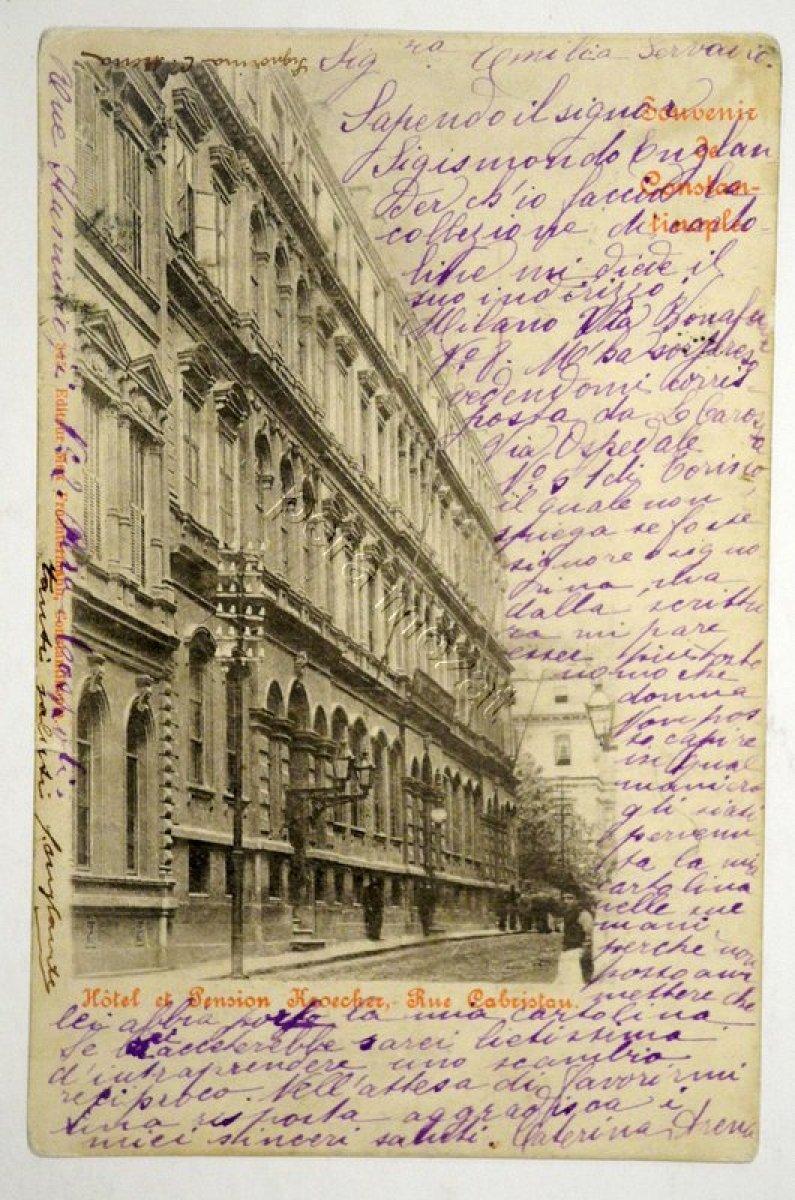 Sig.ra Emilia Servadio.
Souvenir
de
Constan-
tinople
Sapendo il signor
Sigismondo Englan
der ch'io faccio la
collezione di carto
line mi diede il
suo indirizzo:
Milano Via
N° 8. M'ha sorpreso
vedendomi corris
posta da L
Via Ospedale
N° 51 di Torino,
il quale non
spiega se fosse
signore o signo
rina, ma
dalla scrittu
ra mi pare
esser piuttosto
uomo che
donna
Non pos
so capire
in qual
maniera
gli siasi
pervenu
ta la mia
cartolina
nelle sue
mani,
perchè non
posso am
mettere che
lei abbia la mia cartolina
Se accetterebbe sarei lietissima
d'intraprendere uno scambio
reciproco. Nell'attesa di favorirmi
una risposta aggradisca i
miei sinceri saluti. Caterina Arena
Hôtel et Pension Kroecker,- Rue Cabristan.
Signorina C. Arena
Rue
Editeur Max Fruchtermann, Constantinople
tanti saluti